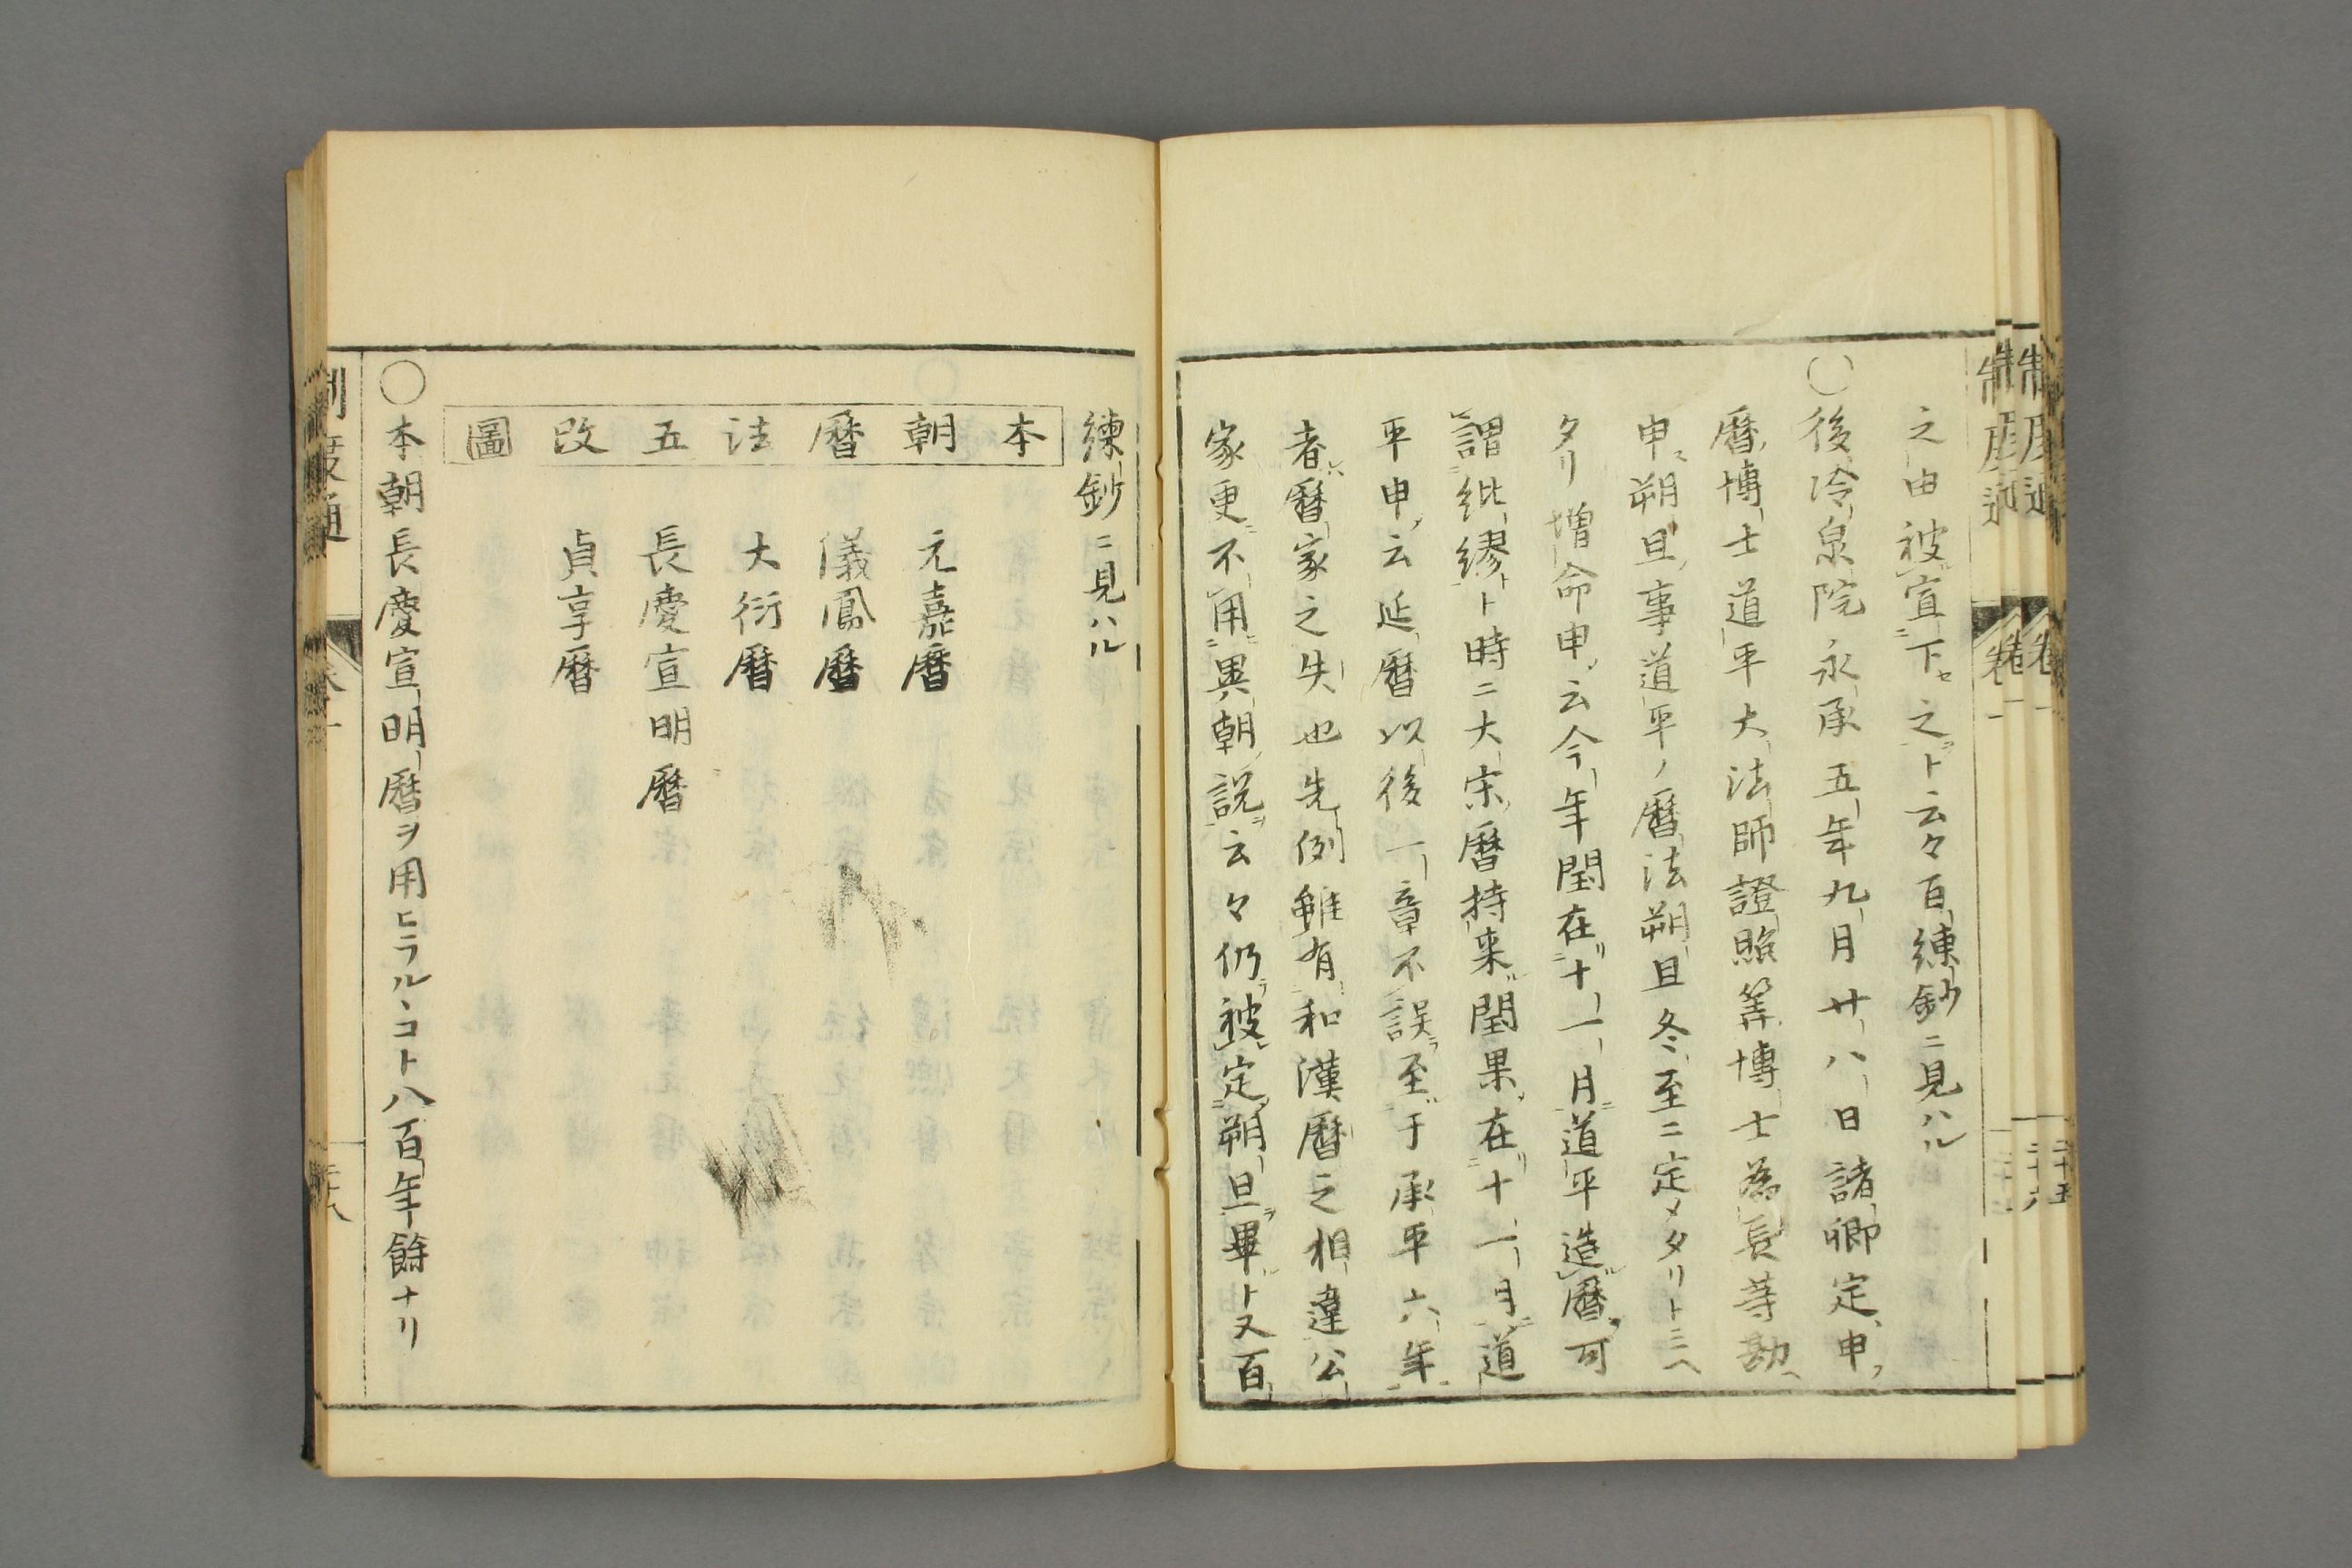 之由被宣下之ト云々百練鈔ニ見ハル
○後冷泉院永承五年九月廿八日諸卿定申
曆博士道平大法師證照筭博士為長等勘
申朔旦事道平ノ曆法朔旦冬至ニ定メタリト三ヘ
タリ増命申云今年閏在十一月道平造曆可
謂紕繆ト時ニ大宋曆持来閏果在十一月道
平申云延曆以後一章不誤至于承平六年
者曆家之失也先例雖有和漢曆之相違公
家更不用異朝説云々仍被定朔旦畢ト又百
練鈔ニ見ハル
本朝曆法五改圖
元嘉曆
儀鳳曆
大衍曆
長慶宣明曆
貞享曆
○本朝長慶宣明曆ヲ用ヒラルヽコト八百年餘ナリ
制度通
卷一